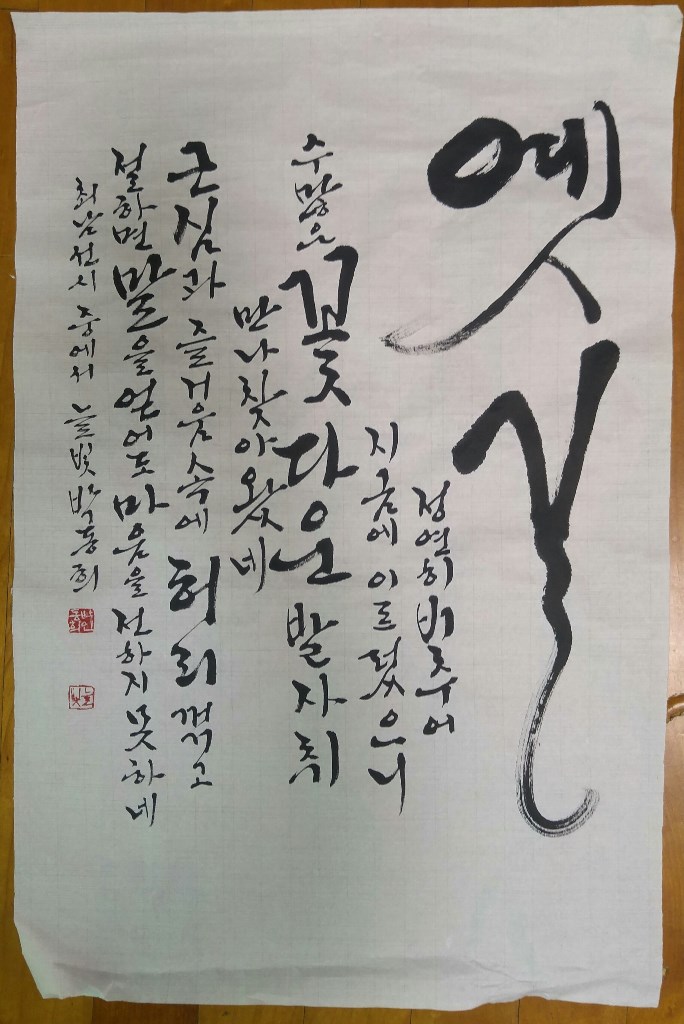 옛길
정연히 비추어
지금에 이르렀으니
수많은 꽃다운 발자취
만나 찾아왔네
근심과 즐거움 속에 허리 꺾고
절하면 말을 얻어도 마음을 전하지 못하네
최남선시 중에서 늘빛 박동희
박인동희
늘빛